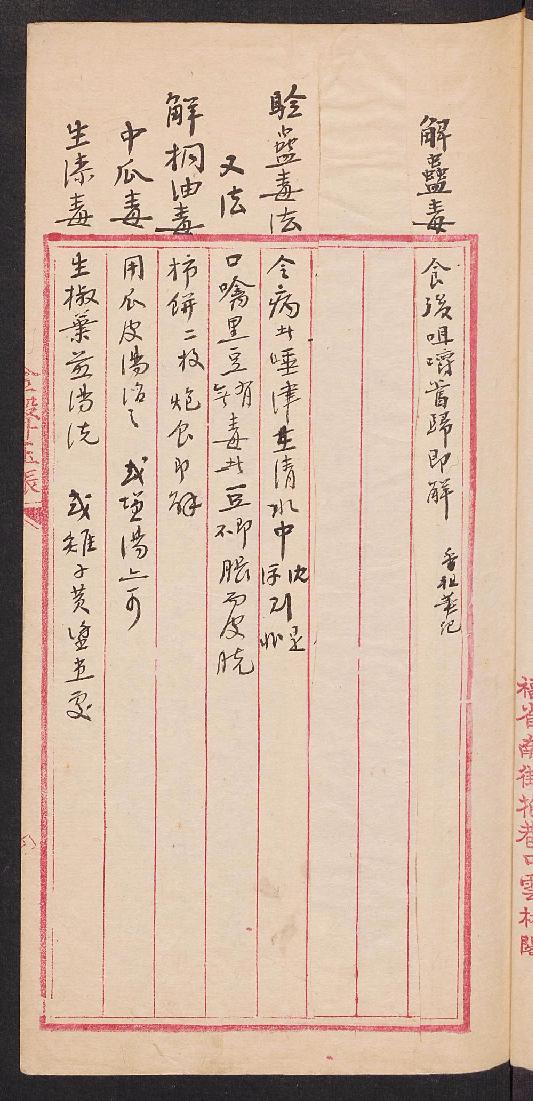 解蠱毒
食後咀嚼當歸即解 香祖筆記
驗蠱毒法
令病者唾津在清水中 沈則是 浮則非
又法
口噙黑豆 有毒者豆即脹而皮脫 無 不
解桐油毒
柿餅二枚炮食即解
中瓜毒
用瓜皮湯治之 或塩湯亦可
生漆毒
生椒葉煎湯洗 或雞子黃塗患處
福省南街 巷口雲林閣